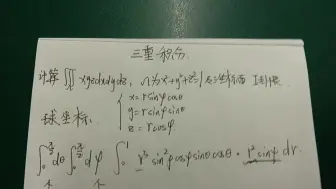 三重积分
计算 ∭ xyz dxdydz, Ω为 x²+y²+z²≤1 及坐标面 I卦限.
球坐标. { x = r sinφ cosθ
y = r sinφ sinθ
z = r cosφ.
∫₀^{π/2} dθ ∫₀^{π/2} dφ ∫₀¹ r³ sin²φ cosφ sinθ cosθ · r² sinφ dr.